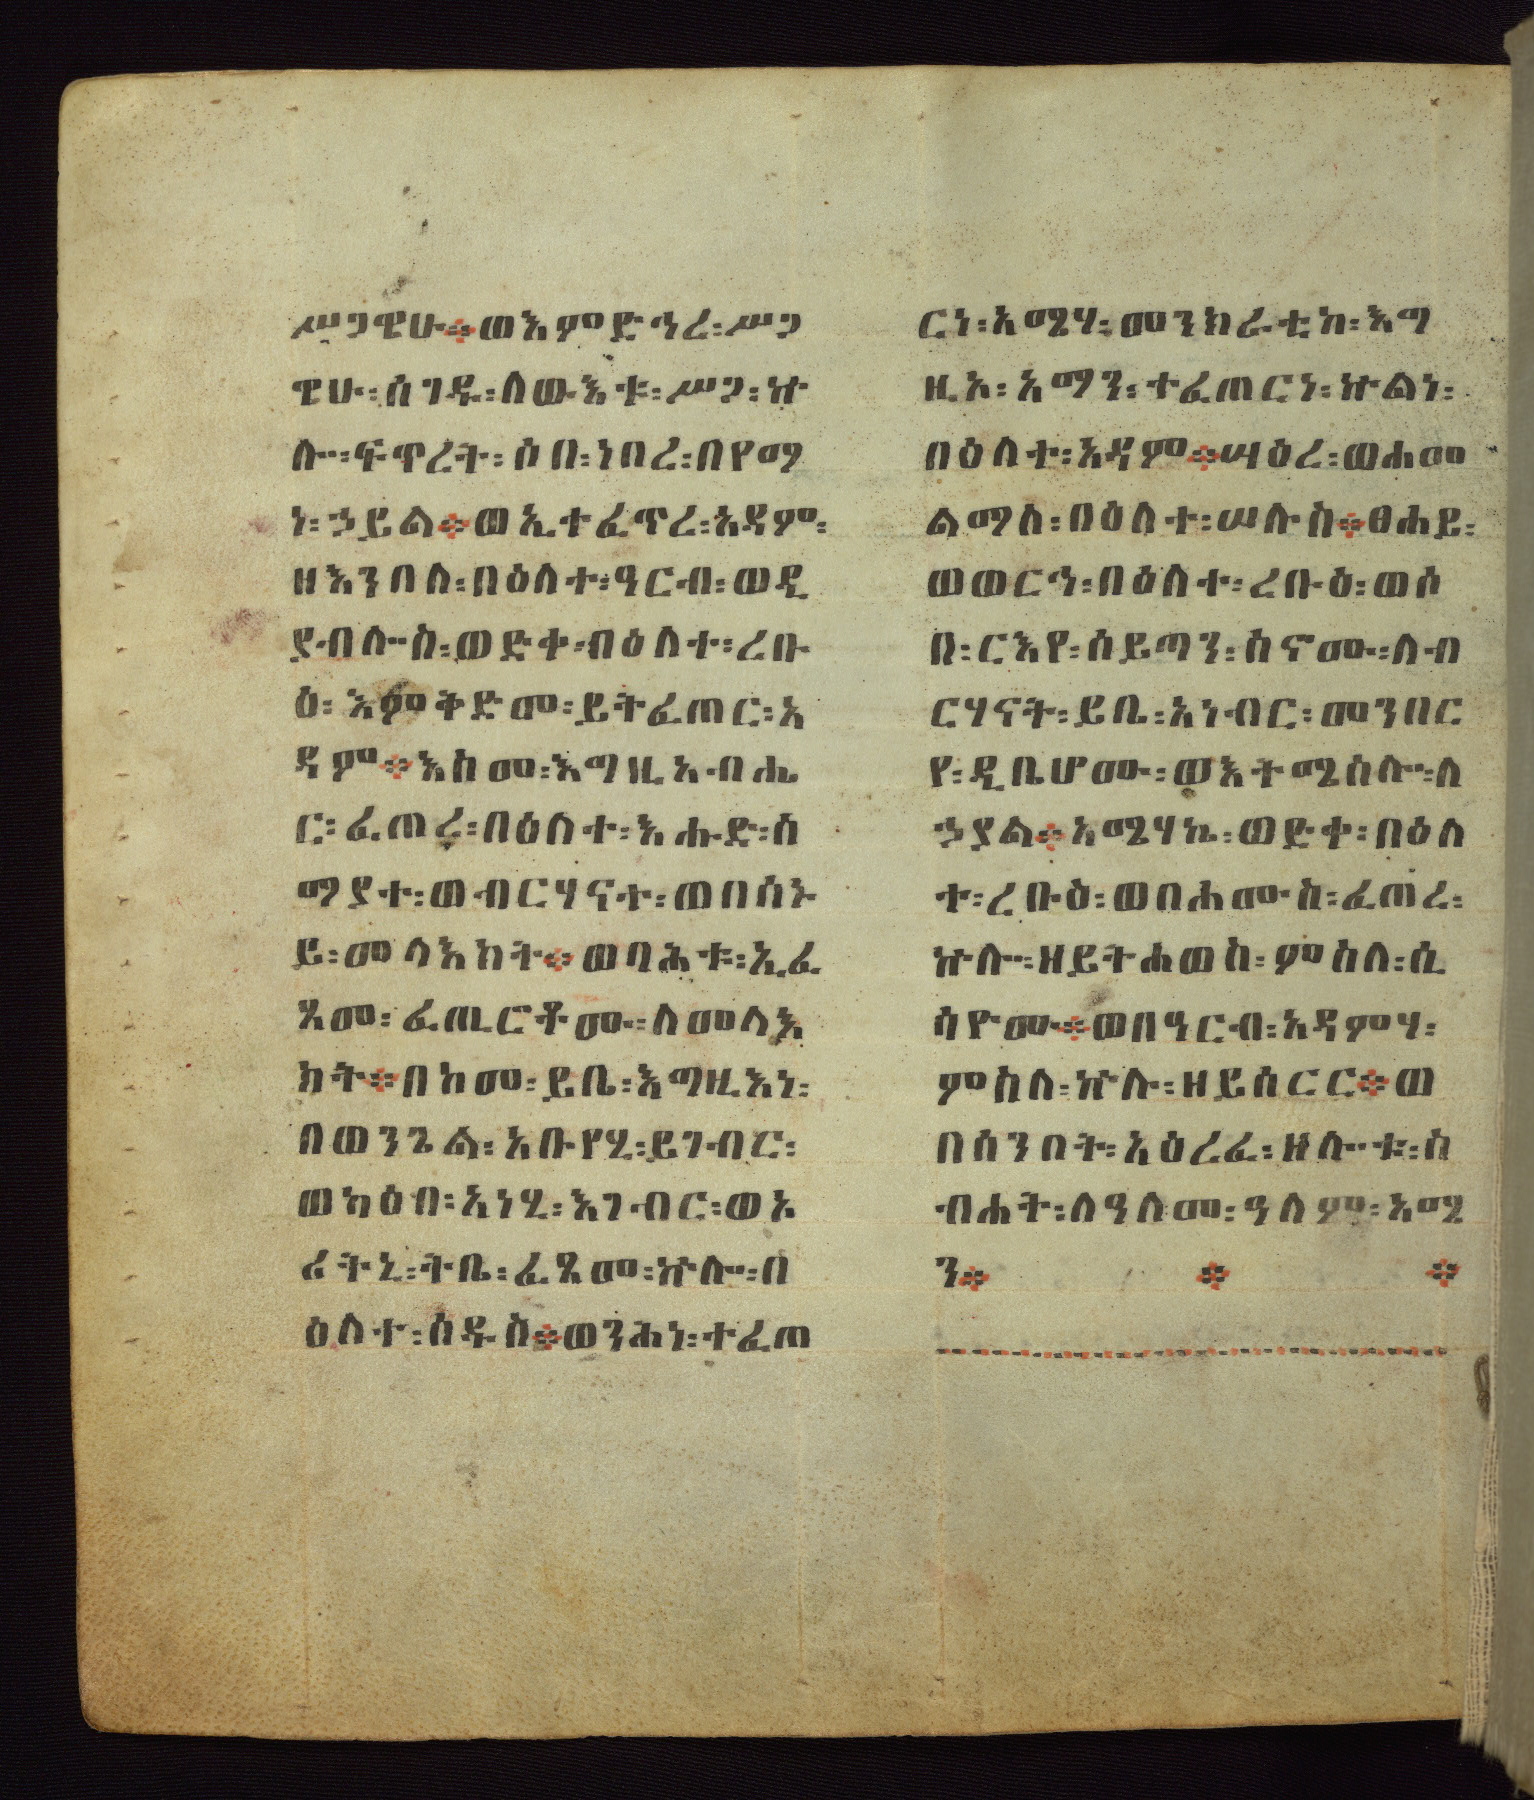 ሥጋዌሁ፨ወእምድኅረ፡ሥጋ
ዌሁ፡ሰገዱ፡ለውእቱ፡ሥጋ፡ኵ
ሉ፡ፍጥረት፡ሶበ፡ነበረ፡በየማ
ነ፡ኃይል፨ወኢተፈጥረ፡አዳም፡
ዘእንበለ፡በዕለተ፡ዓርብ፡ወዲ
ያብሎስ፡ወድቀ፡ብዕለተ፡ረቡ
ዕ፡እምቅድመ፡ይትፈጠር፡አ
ዳም፨እስመ፡እግዚአብሔ
ር፡ፈጠረ፡በዕለተ፡እሑድ፡ሰ
ማያተ፡ወብርሃናተ፡ወበሰኑ
ይ፡መላእክት፨ወባሕቱ፡ኢፈ
ጸመ፡ፈጢሮቶሙ፡ለመላእ
ክት፨በከመ፡ይቤ፡እግዚእነ፡
በወንጌል፡አቡየሂ፡ይገብር፡
ወካዕበ፡አነሂ፡እገብር፡ወኦ
ሪትኒ፡ትቤ፡ፈጸመ፡ኵሎ፡በ
ዕለተ፡ሰዱስ፨ወንሕነ፡ተፈጠ
ርነ፡አሜሃ፡መንክራቲከ፡እግ
ዚኦ፡አማን፡ተፈጠርነ፡ኵልነ፡
በዕለተ፡አዳም፨ሣዕረ፡ወሐመ
ልማለ፡በዕለተ፡ሠሉስ፨ፀሐይ፡
ወወርኅ፡በዕለተ፡ረቡዕ፡ወሶ
በ፡ርእየ፡ሰይጣን፡ስኖሙ፡ለብ
ርሃናት፡ይቤ፡አነብር፡መንበር
የ፡ዲቤሆሙ፡ወእትሜሰሎ፡ለ
ኃያል፨አሜሃኬ፡ወድቀ፡በዕለ
ተ፡ረቡዕ፡ወበሐሙስ፡ፈጠረ፡
ኵሎ፡ዘይትሐወስ፡ምስለ፡ሲ
ሳዮሙ፨ወበዓርብ፡አዳምሃ፡
ምስለ፡ኵሉ፡ዘይሰርር፨ወ
በሰንበት፡አዕረፈ፡ዘሎቱ፡ስ
ብሐት፡ለዓለመ፡ዓለም፡አሜ
ን፨ ፨ ፨